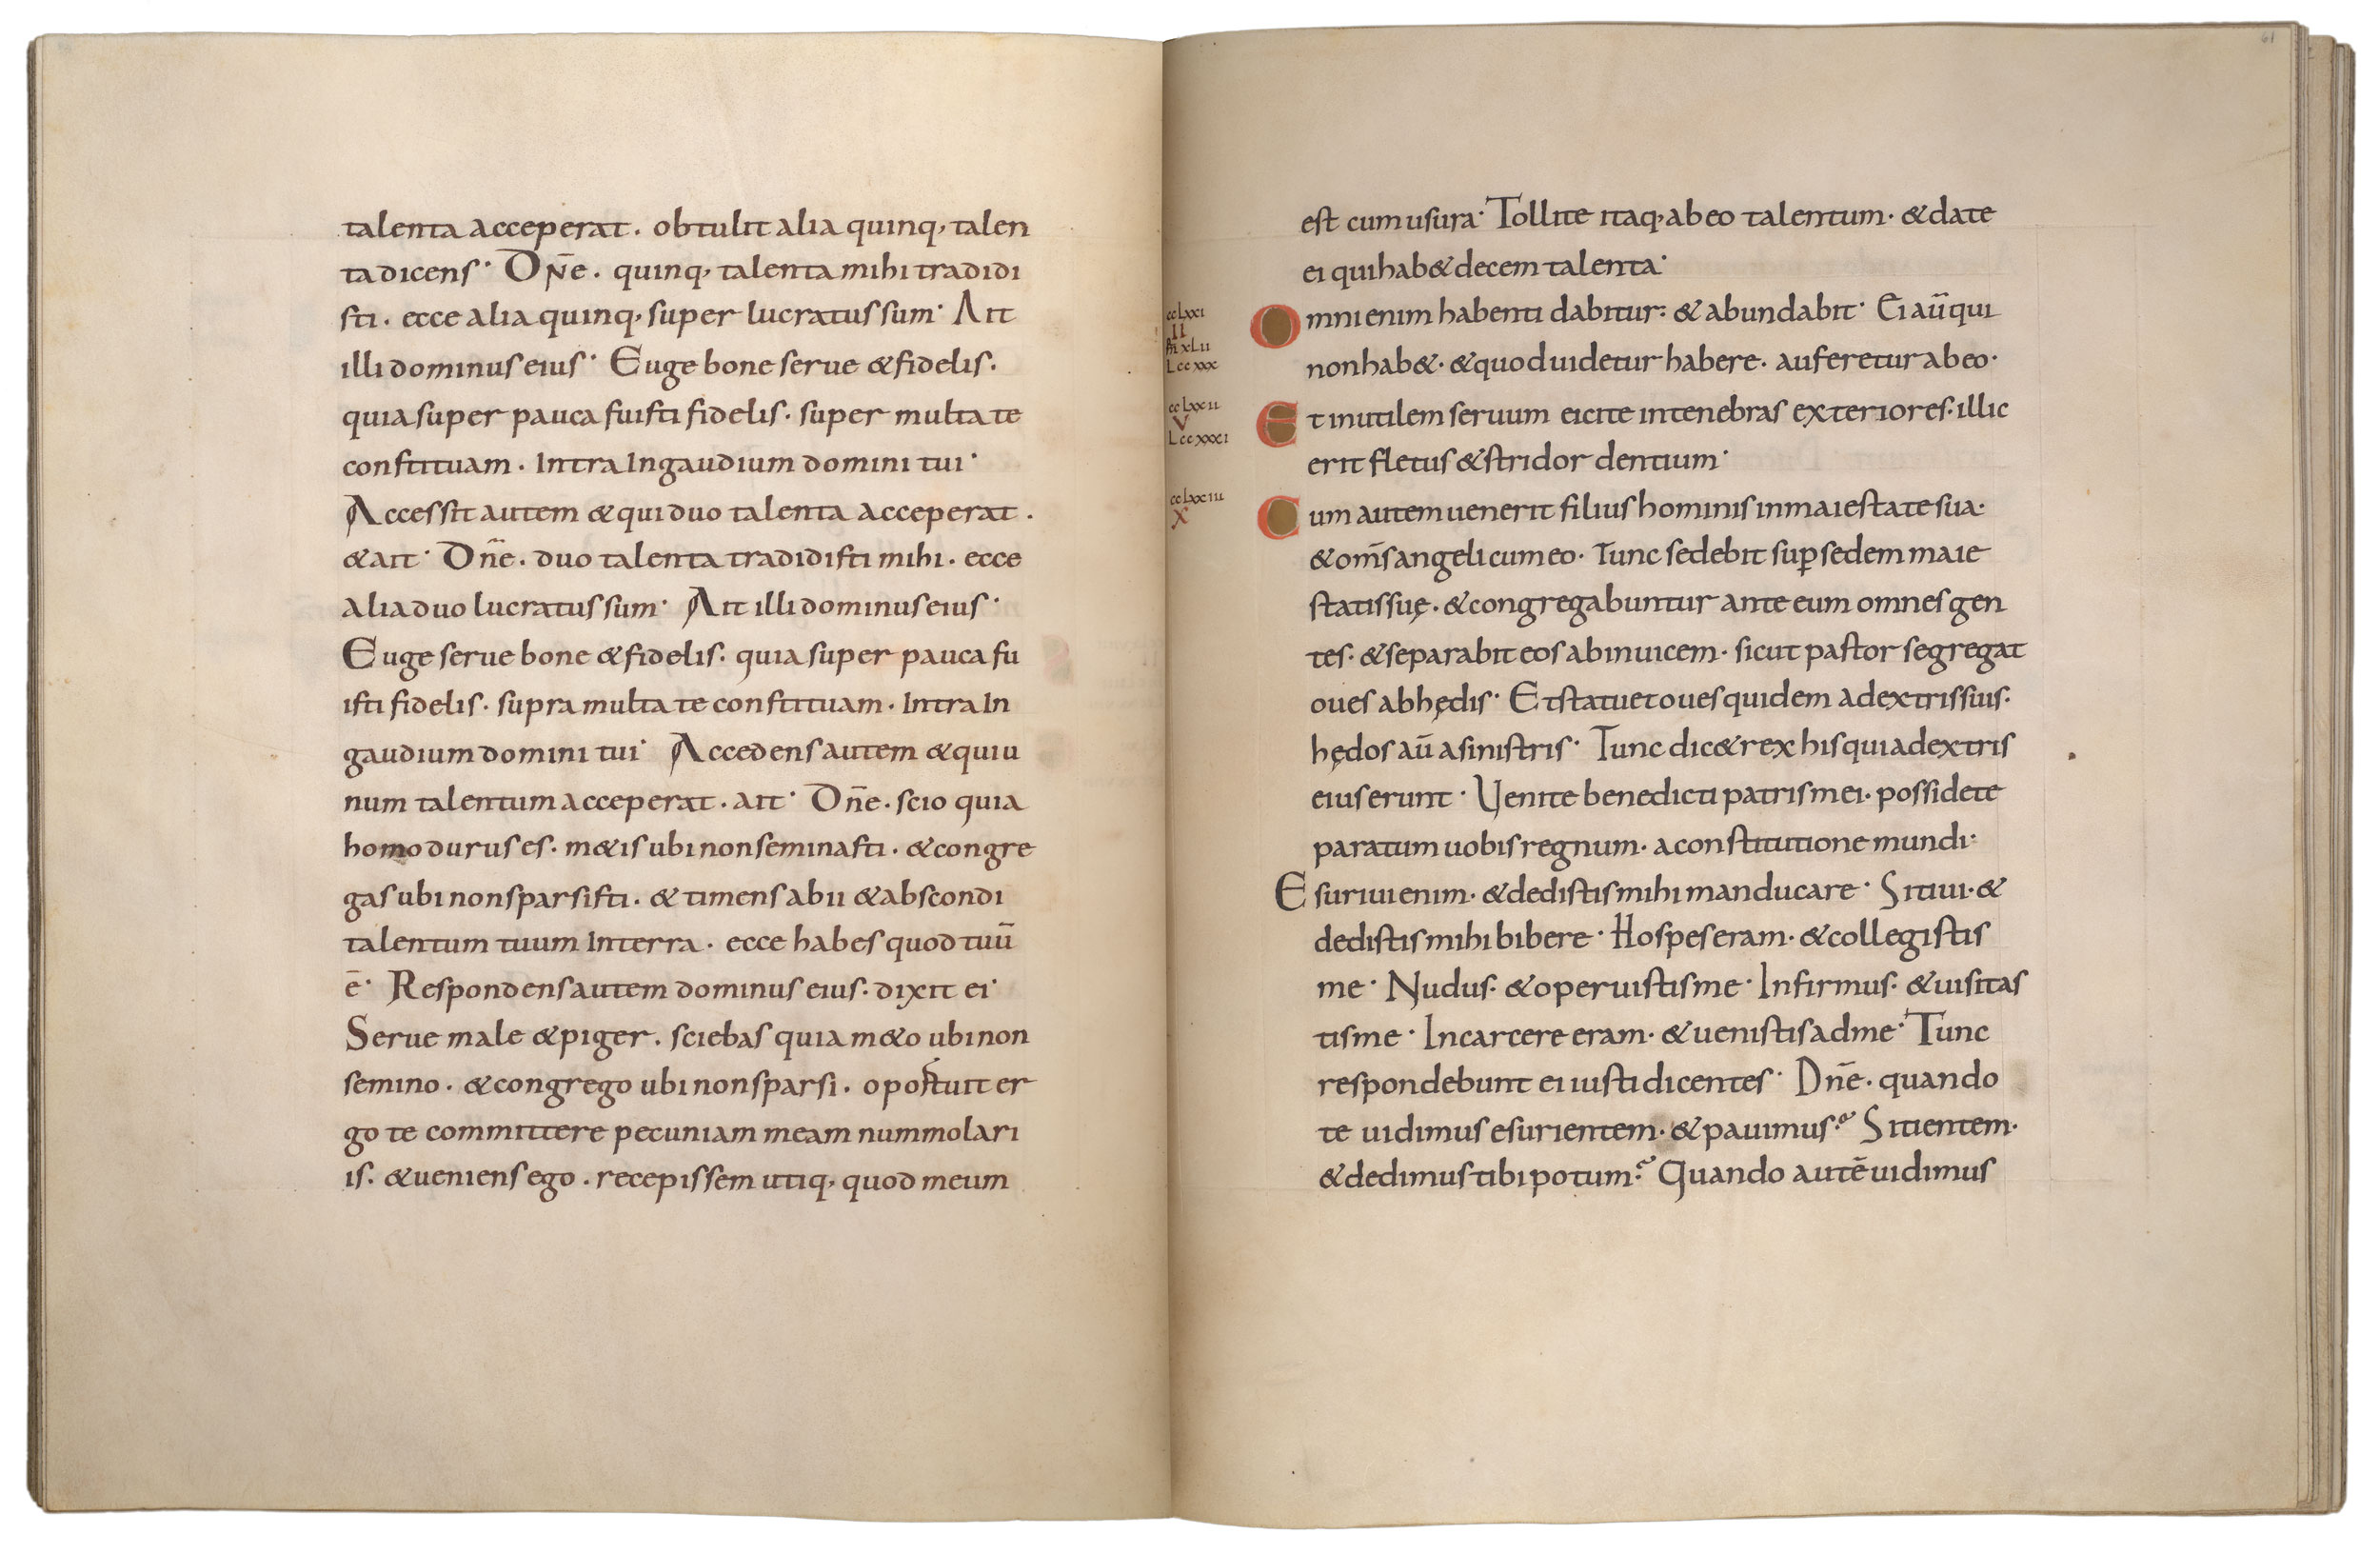 talenta acceperat. obtulit alia quinq, talen
ta dicens· Dn̄e. quinq, talenta mihi tradidi
sti. ecce alia quinq, super lucratus sum· Ait
illi dominus eius· Euge bone serue & fidelis.
quia super pauca fuisti fidelis. super multa te
constituam. Intra In gaudium domini tui·
Accessit autem & qui duo talenta acceperat.
& ait· Dn̄e. duo talenta tradidisti mihi. ecce
alia duo lucratus sum· Ait illi dominus eius·
Euge serue bone & fidelis. quia super pauca fu
isti fidelis. supra multa te constituam. Intra In
gaudium domini tui· Accedens autem & qui u
num talentum acceperat. ait· Dn̄e. scio quia
homo durus es. m&is ubi non seminasti. & congre
gas ubi non sparsisti. & timens abii & abscondi
talentum tuum Interra. ecce habes quod tuū
ē· Respondens autem dominus eius. dixit ei·
Serue male & piger. sciebas quia m&o ubi non
semino. & congrego ubi non sparsi. oportuit er
go te committere pecuniam meam nummolari
is. & ueniens ego. recepissem utiq, quod meum
61
est cum usura· Tollite itaq, ab eo talentum· & date
ei qui hab& decem talenta·
ccLxxI
II
xLII
Lccxxx
Omni enim habenti dabitur: & abundabit· Ei aū qui
non hab&· & quod uidetur habere· auferetur ab eo·
ccLxxII
V
Lccxxxi
Et inutilem seruum eicite in tenebras exteriores· illic
erit fletus & stridor dentium·
ccLxxIII
X
Cum autem uenerit filius hominis in maiestate sua·
& om̄s angeli cum eo· Tunc sedebit sup̱ sedem maie
statis suę· & congregabuntur ante eum omnes gen
tes· & separabit eos ab inuicem· sicut pastor segregat
oues ab hędis· Et statuet oues quidem a dextris suis·
hędos aū a sinistris· Tunc dic& rex his qui a dextris
eius erunt· Uenite benedicti patris mei· possidete
paratum uobis regnum· a constitutione mundi·
Esuriui enim· & dedistis mihi manducare· Sitiui· &
dedistis mihi bibere· Hospes eram· & collegistis
me· Nudus· & operuistis me· Infirmus· & uisitas
tis me· In carcere eram· & uenistis ad me· Tunc
respondebunt ei iusti dicentes· Dn̄e· quando
te uidimus esurientem· & pauimus? Sitientem·
& dedimus tibi potum? Quando autē uidimus